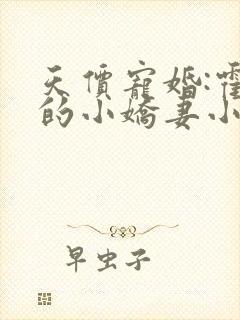 天價寵婚:霍
的小嬌妻小
早虫子